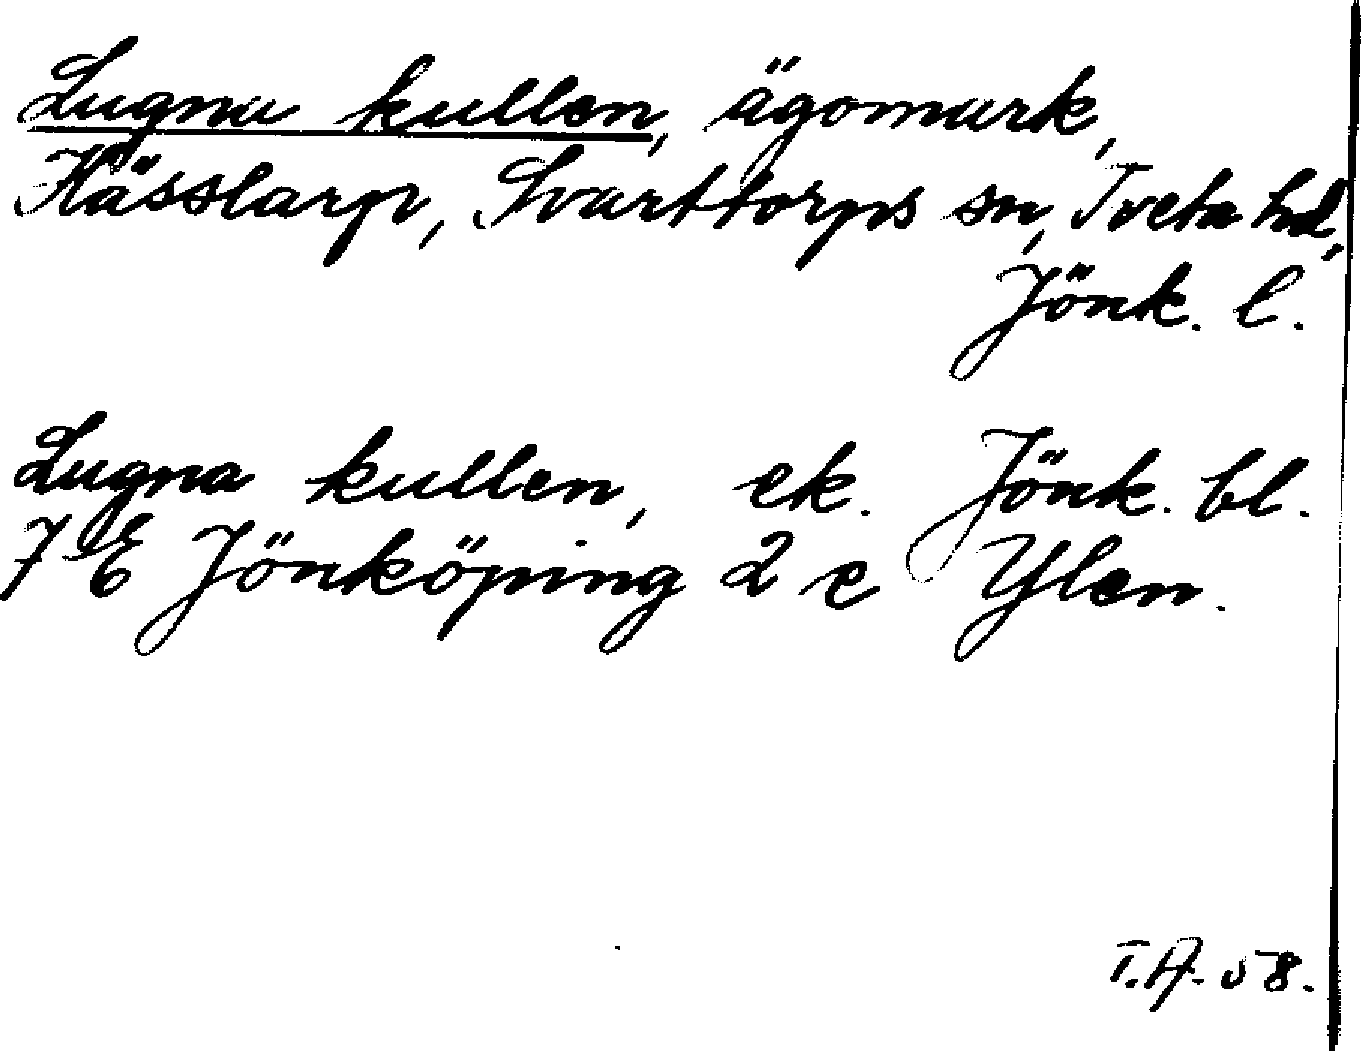 Lugna kullen, ägomark,
Hässlarp, Svarttorps sn, Tveta hd,
Jönk. l.
Lugna kullen, ek. Jönk. bl.
7 E Jönköping 2 e Ylen.
T.A. 58.